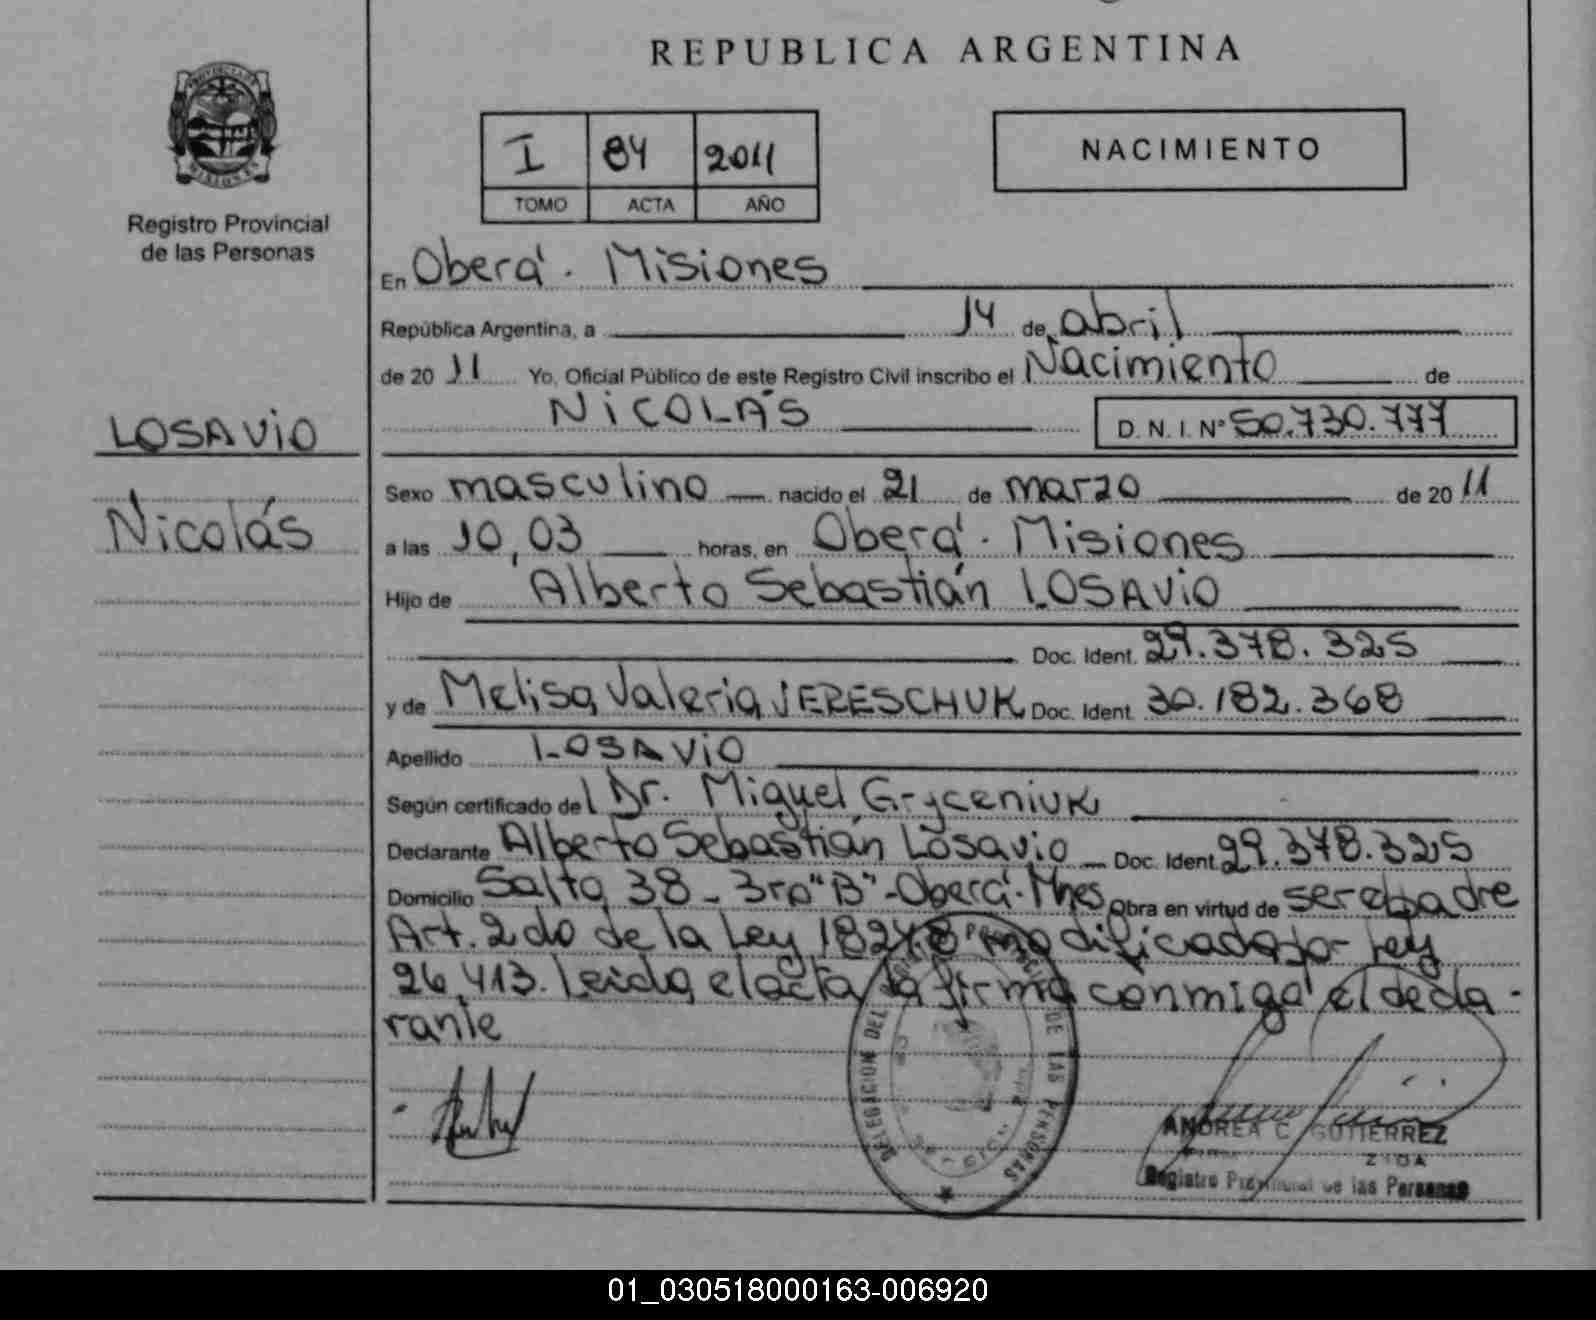 REPUBLICA ARGENTINA
I 84 2011
TOMO ACTA AÑO
NACIMIENTO
Registro Provincial
de las Personas
En Oberá - Misiones
República Argentina, a 14 de abril
de 20 11 Yo, Oficial Público de este Registro Civil inscribo el Nacimiento de
NICOLÁS D. N. I. N° 50.730.777
LOSAVIO
Nicolás
Sexo masculino nacido el 21 de marzo de 20 11
a las 10,03 horas, en Oberá - Misiones
Hijo de Alberto Sebastián LOSAVIO
Doc. Ident. 29.378.325
y de Melisa Valeria JERESCHUK Doc. Ident. 30.182.368
Apellido LOSAVIO
Según certificado del Dr. Miguel Gryceniuk
Declarante Alberto Sebastián Losavio Doc. Ident. 29.378.325
Domicilio Salta 38 - 3ro "B" - Oberá - Mnes Obra en virtud de ser el padre
Art. 2do de la Ley 18248 modificada por Ley
26.413. Leida el acta la firma conmigo el decla-
rante
DELEGACION DEL DE LAS PERSONAS
ANDREA C. GUTIERREZ
Registro Provincial de las Personas
01_030518000163-006920